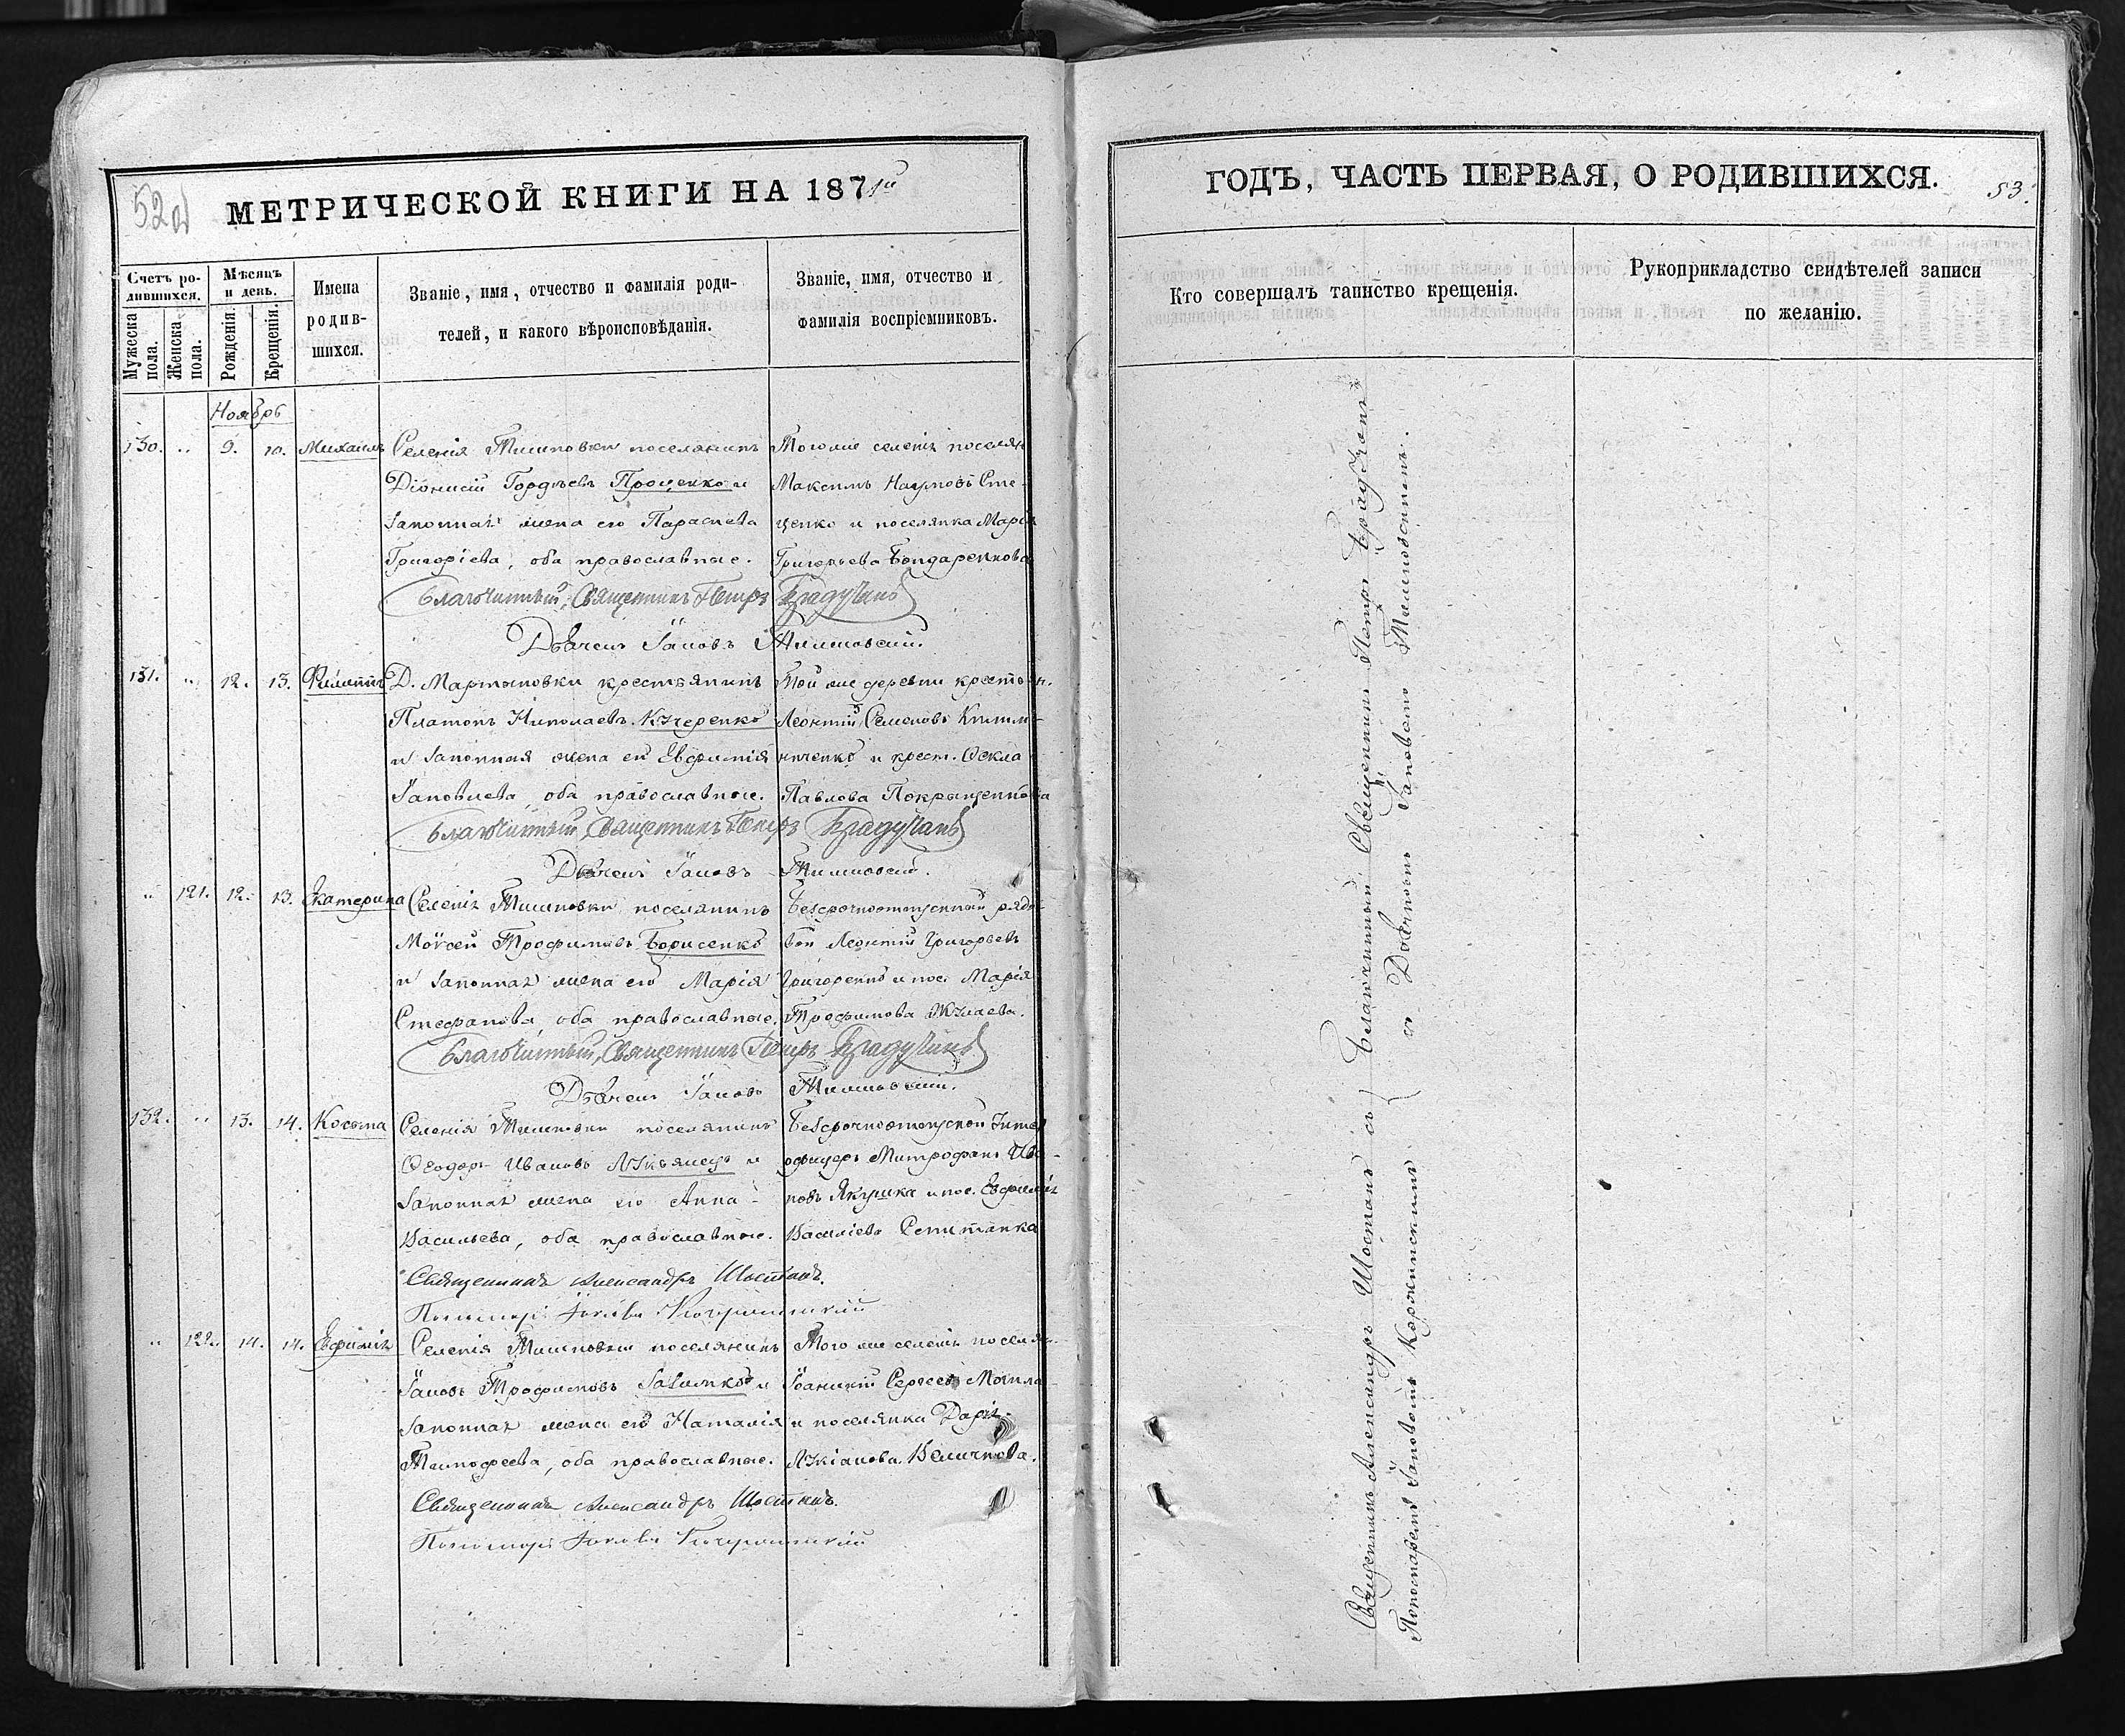 52
МЕТРИЧЕСКОЙ КНИГИ НА 1871й
Счетъ ро-
дившихся.
Мужеска
пола.
Женска
пола.
Мѣсяцъ
и день.
Рожденія.
Крещенія.
Имена
родив-
шихся.
Званіе, имя, отчество и фамилія роди-
телей, и какого вѣроисповѣданія.
Званіе, имя, отчество и
фамилія воспріемниковъ.
Ноябрь
130. „ 9. 10. Михаилъ
Селенія Тишковки поселянинъ
Діонисій Гордѣевъ Проценко и
законная жена его Параскева
Григоріева, оба православные.
Тогоже селенія поселян
Максимъ Наумовъ Сте-
ценко и поселянка Марія
Григорьева Бондаренкова
Благочинный, Священникъ Петръ Брадучанъ
Дьячекъ Іаковъ
131. „ 12. 13. Филиппъ
Д. Мартыновки крестьянинъ
Платонъ Николаевъ Кучеренко
и законная жена его Евфимія
Іаковлева, оба православные.
Той же деревни крестьян.
Леонтій Семеновъ
и крест. Ѳекла
Павлова
Благочинный, Священникъ Петръ Брадучанъ
Дьячекъ Іаковъ
„ 121. 12. 13. Екатерина
Селенія Тишковки поселянинъ
Моѵсей Трофимовъ Борисенко
и законная жена его Марія
Стефанова, оба православные.
Безсрочноотпускный рядо-
вой Леонтій Григорьевъ
Григоренко и пос. Марія
Трофимова
Благочинный, Священникъ Петръ Брадучанъ
Дьячекъ Іаковъ
132. „ 13. 14. Косьма
Селенія Тишковки поселянинъ
Ѳеодоръ Ивановъ Лукьянецъ и
законная жена его Анна
Васильева, оба православные.
Безсрочноотпускной Унтеръ
офицеръ Митрофанъ Ива-
новъ Якушка и пос. Евфимія
Василіева
Священникъ Александръ Шостакъ.
Пономарь Іаковъ
„ 122. 14. 14. Евфимія
Селенія Тишковки поселянинъ
Іаковъ Трофимовъ и
законная жена его Наталія
Тимофеева, оба православные.
Того же селенія поселян.
Іоанникій Сергеевъ Могила
и поселянка Дарія
Лукіанова Величкова.
Священникъ Александръ Шостакъ.
Пономарь Іаковъ
ГОДЪ, ЧАСТЬ ПЕРВАЯ, О РОДИВШИХСЯ.
53.
Кто совершалъ таинство крещенія.
Рукоприкладство свидѣтелей записи
по желанію.
Благочинный Священникъ Петръ Брадучанъ
съ Дьячкомъ Іаковомъ
Священникъ Александръ Шостакъ съ
Пономаремъ Іаковомъ